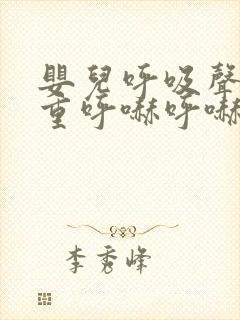 嬰兒呼吸聲
重呼嚇呼嚇
李秀峰